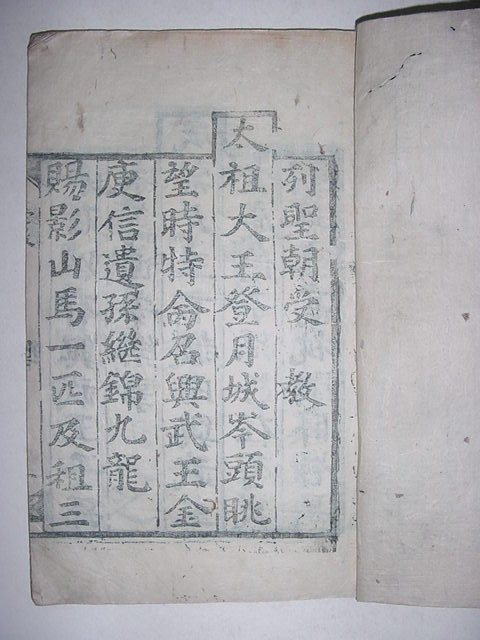 列聖朝受 教
太祖大王登月城岑頭眺
望時特命召興武王金
庾信遺孫繼錦九龍
賜影山馬一匹及租三